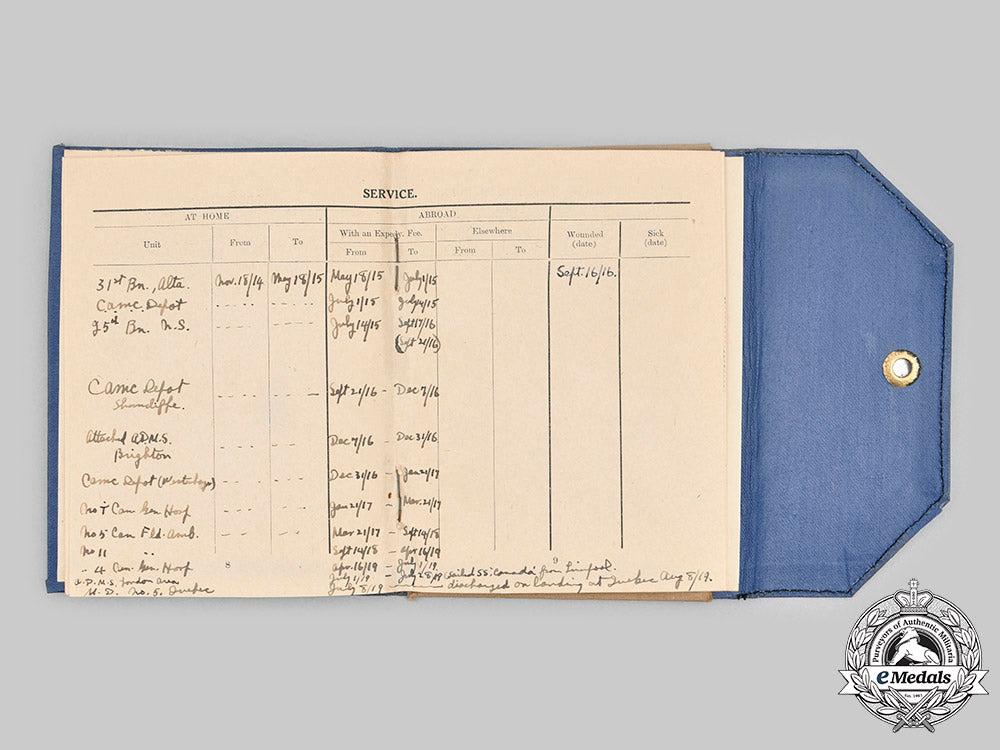 SERVICE.
AT HOME ABROAD
Unit From To With an Expedy. Fee. Elsewhere Wounded (date) Sick (date)
From To From To
31st Bn., Alta. Nov. 18/14 May 18/15 May 18/15 July 1/15 Sept. 16/16.
C.a.m.c. Depot July 1/15 July 14/15
25th Bn. N.S. July 14/15 Sept 17/16
(Sept 21/16)
Camc Depot Sept 21/16 - Dec 7/16
Shorncliffe.
Attached A.D.M.S. Dec 7/16 - Dec 31/16
Brighton
Camc Depot Dec 31/16 - Jan 21/17
No 7 Can Gen Hosp Jan 21/17 - Mar. 21/17
No 5 Can Fld. Amb. Mar 21/17 - Sept 14/18
No 11 " Sept 14/18 - apr 16/19
" 4 Can. Gen. Hosp apr. 16/19 - July 1/19.
A.D.M.S. London area July 1/19 - July 28/19 (sailed SS. "Canada" from Liverpool.
M.D. No. 5. Quebec July 8/19 discharged on landing at Quebec Aug 8/19.
8 9
Purveyors of Authentic Militaria
eMedals